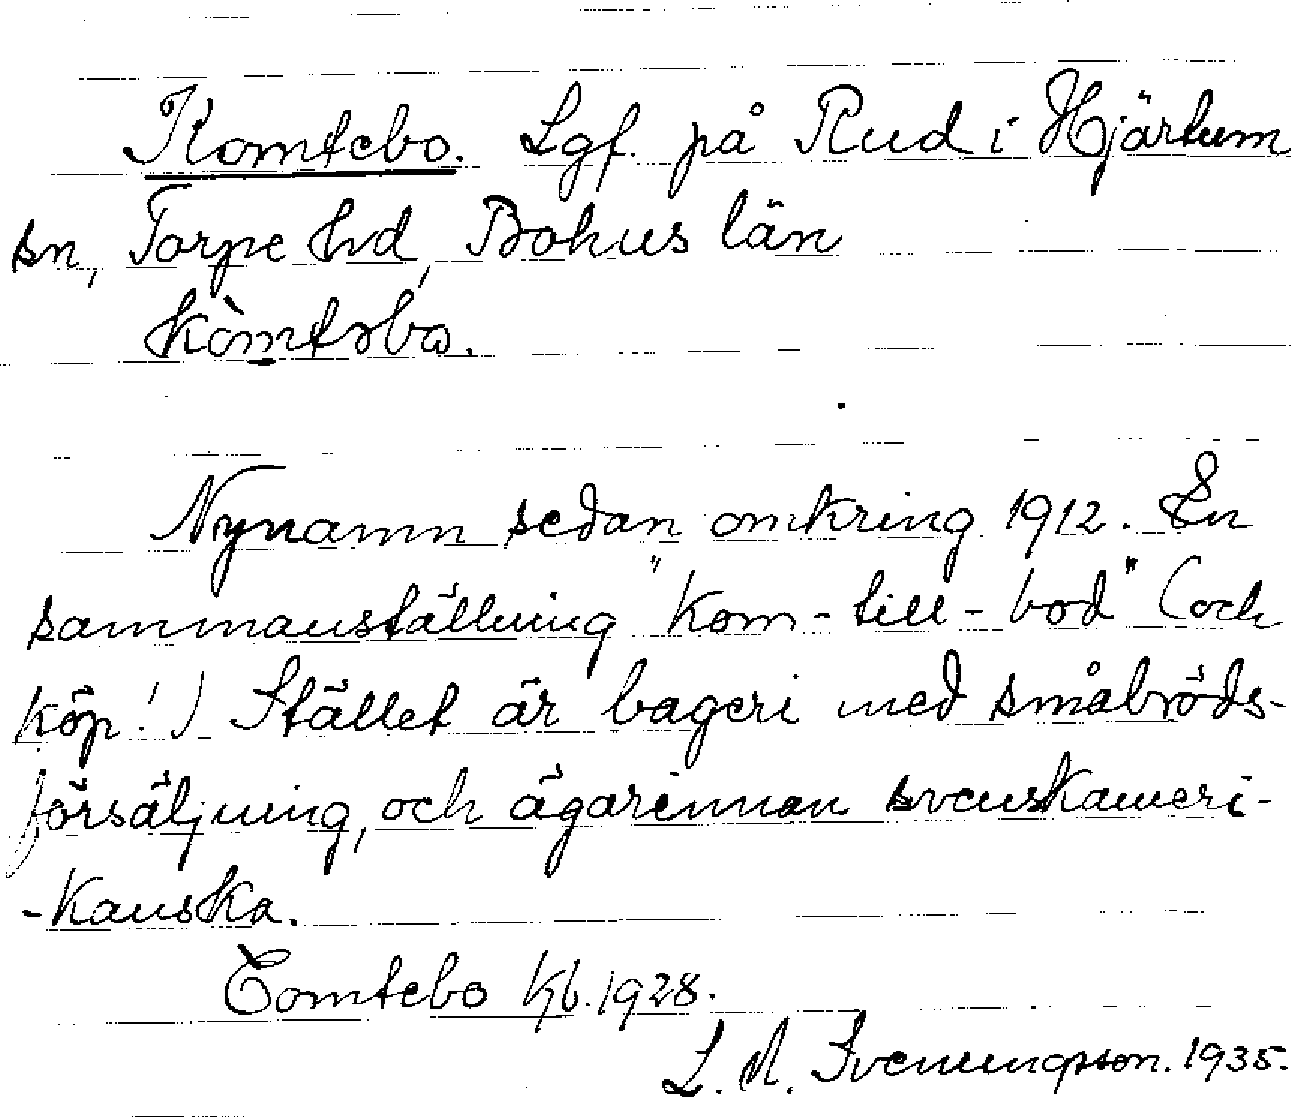 Komtebo. Lgf. på Rud i Hjärtum
sn, Torpe hd, Bohus län
kòmtəbo.
Nynamn sedan omkring 1912. En
sammanställning "kom-till-bod" (och
köp!) Stället är bageri med småbröds-
försäljning, och ägarinnan svenskameri-
-kanska.
Comtebo Kb. 1928.
L. A. Svenungsson. 1935.